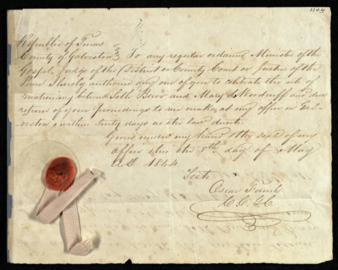 Republic of Texas
County of Galveston } To any regular ordained Minister of the
Gospel, Judge of the District or County Court or Justice of the
Peace I hereby authorise any one of you to celebrate the rite of
matrimony between Seth and Mary Woodruff and due
return of your proceedings to me make, at my office in
within sixty days as the law directs.
Given under my hand & seal of
office this the 8th day of May
A.D. 1844
Oscar Farish